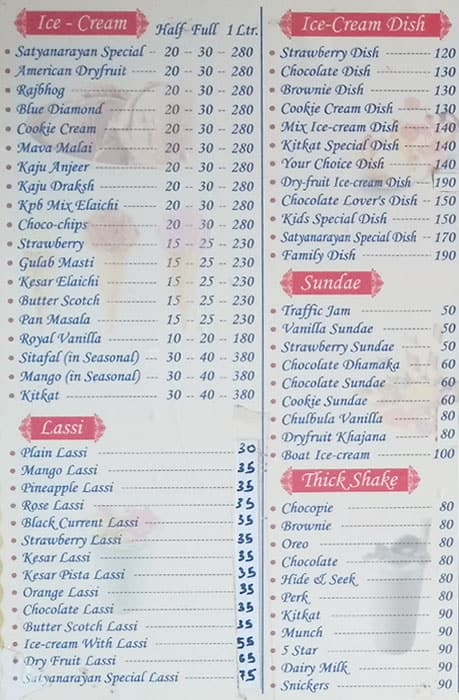 Ice - Cream Half Full 1 Ltr.
Satyanarayan Special 20 30 280
American Dryfruit 20 30 280
Rajbhog 20 30 280
Blue Diamond 20 30 280
Cookie Cream 20 30 280
Mava Malai 20 30 280
Kaju Anjeer 20 30 280
Kaju Draksh 20 30 280
Kpb Mix Elaichi 20 30 280
Choco-chips 20 30 280
Strawberry 15 25 230
Gulab Masti 15 25 230
Kesar Elaichi 15 25 230
Butter Scotch 15 25 230
Pan Masala 15 25 230
Royal Vanilla 10 20 180
Sitafal (in Seasonal) 30 40 380
Mango (in Seasonal) 30 40 380
Kitkat 30 40 380
Lassi
Plain Lassi 30
Mango Lassi 35
Pineapple Lassi 35
Rose Lassi 35
Black Current Lassi 35
Strawberry Lassi 35
Kesar Lassi 35
Kesar Pista Lassi 35
Orange Lassi 35
Chocolate Lassi 35
Butter Scotch Lassi 35
Ice-cream With Lassi 55
Dry Fruit Lassi 65
Satyanarayan Special Lassi 75
Ice-Cream Dish
Strawberry Dish 120
Chocolate Dish 130
Brownie Dish 130
Cookie Cream Dish 130
Mix Ice-cream Dish 140
Kitkat Special Dish 140
Your Choice Dish 140
Dry-fruit Ice-cream Dish 190
Chocolate Lover's Dish 150
Kids Special Dish 150
Satyanarayan Special Dish 170
Family Dish 190
Sundae
Traffic Jam 50
Vanilla Sundae 50
Strawberry Sundae 50
Chocolate Dhamaka 60
Chocolate Sundae 60
Cookie Sundae 60
Chulbula Vanilla 80
Dryfruit Khajana 80
Boat Ice-cream 100
Thick Shake
Chocopie 80
Brownie 80
Oreo 80
Chocolate 80
Hide & Seek 80
Perk 80
Kitkat 90
Munch 90
5 Star 90
Dairy Milk 90
Snickers 90